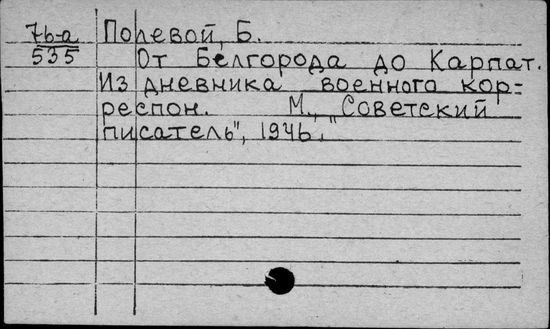 76-а Полевой, Б.
535 От Белгорода до Карпат.
Из дневника военного кор-
респон. М., „Советский
писатель", 1946.